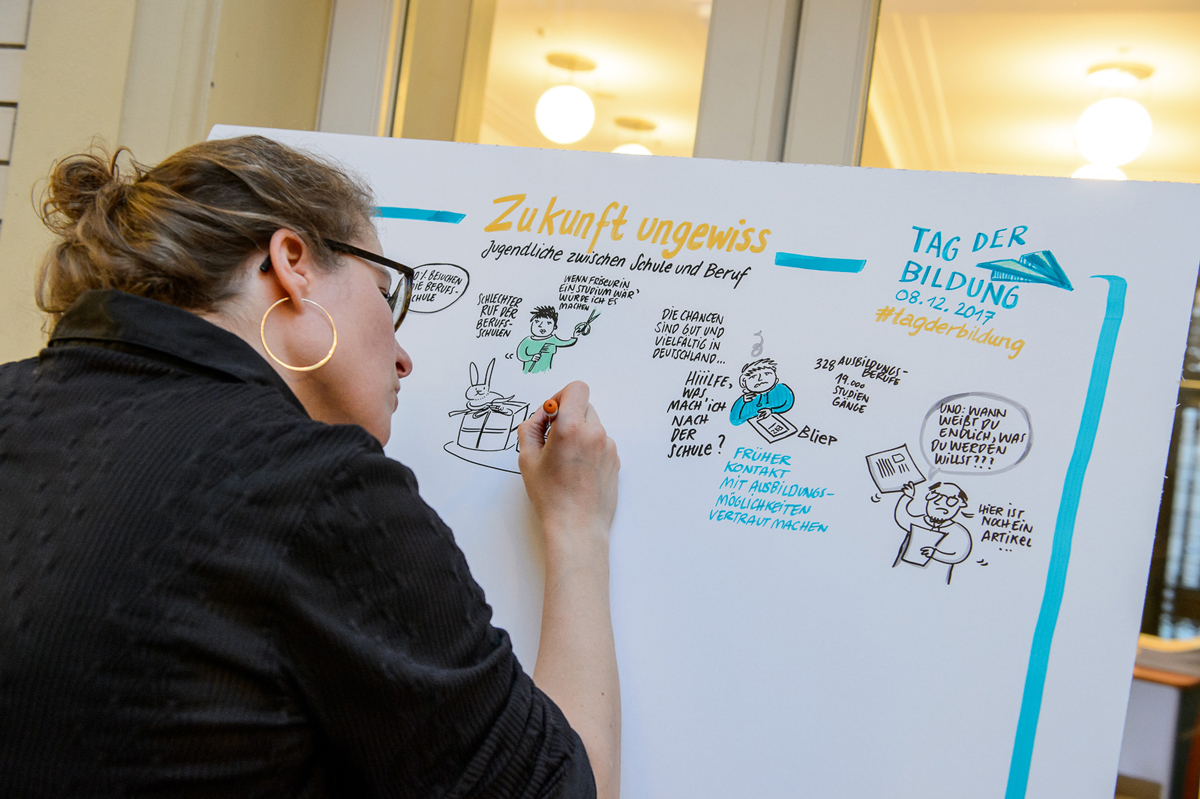 Zukunft ungewiss
Jugendliche zwischen Schule und Beruf
TAG DER
BILDUNG
08.12.2017
#tagderbildung
0% BESUCHEN
DIE BERUFS-
SCHULE
SCHLECHTER
RUF DER
BERUFS-
SCHULEN
WENN FRISEURIN
EIN STUDIUM WÄR'
WÜRDE ICH ES
MACHEN
DIE CHANCEN
SIND GUT UND
VIELFÄLTIG IN
DEUTSCHLAND...
HIIILFE,
WAS
MACH' ICH
NACH
DER
SCHULE?
Bliep
FRÜHER
KONTAKT
MIT AUSBILDUNGS-
MÖGLICHKEITEN
VERTRAUT MACHEN
328 AUSBILDUNGS-
BERUFE
19.000
STUDIEN
GÄNGE
UND: WANN
WEIßT DU
ENDLICH, WAS
DU WERDEN
WILLST???
HIER IST
NOCH EIN
ARTIKEL
...